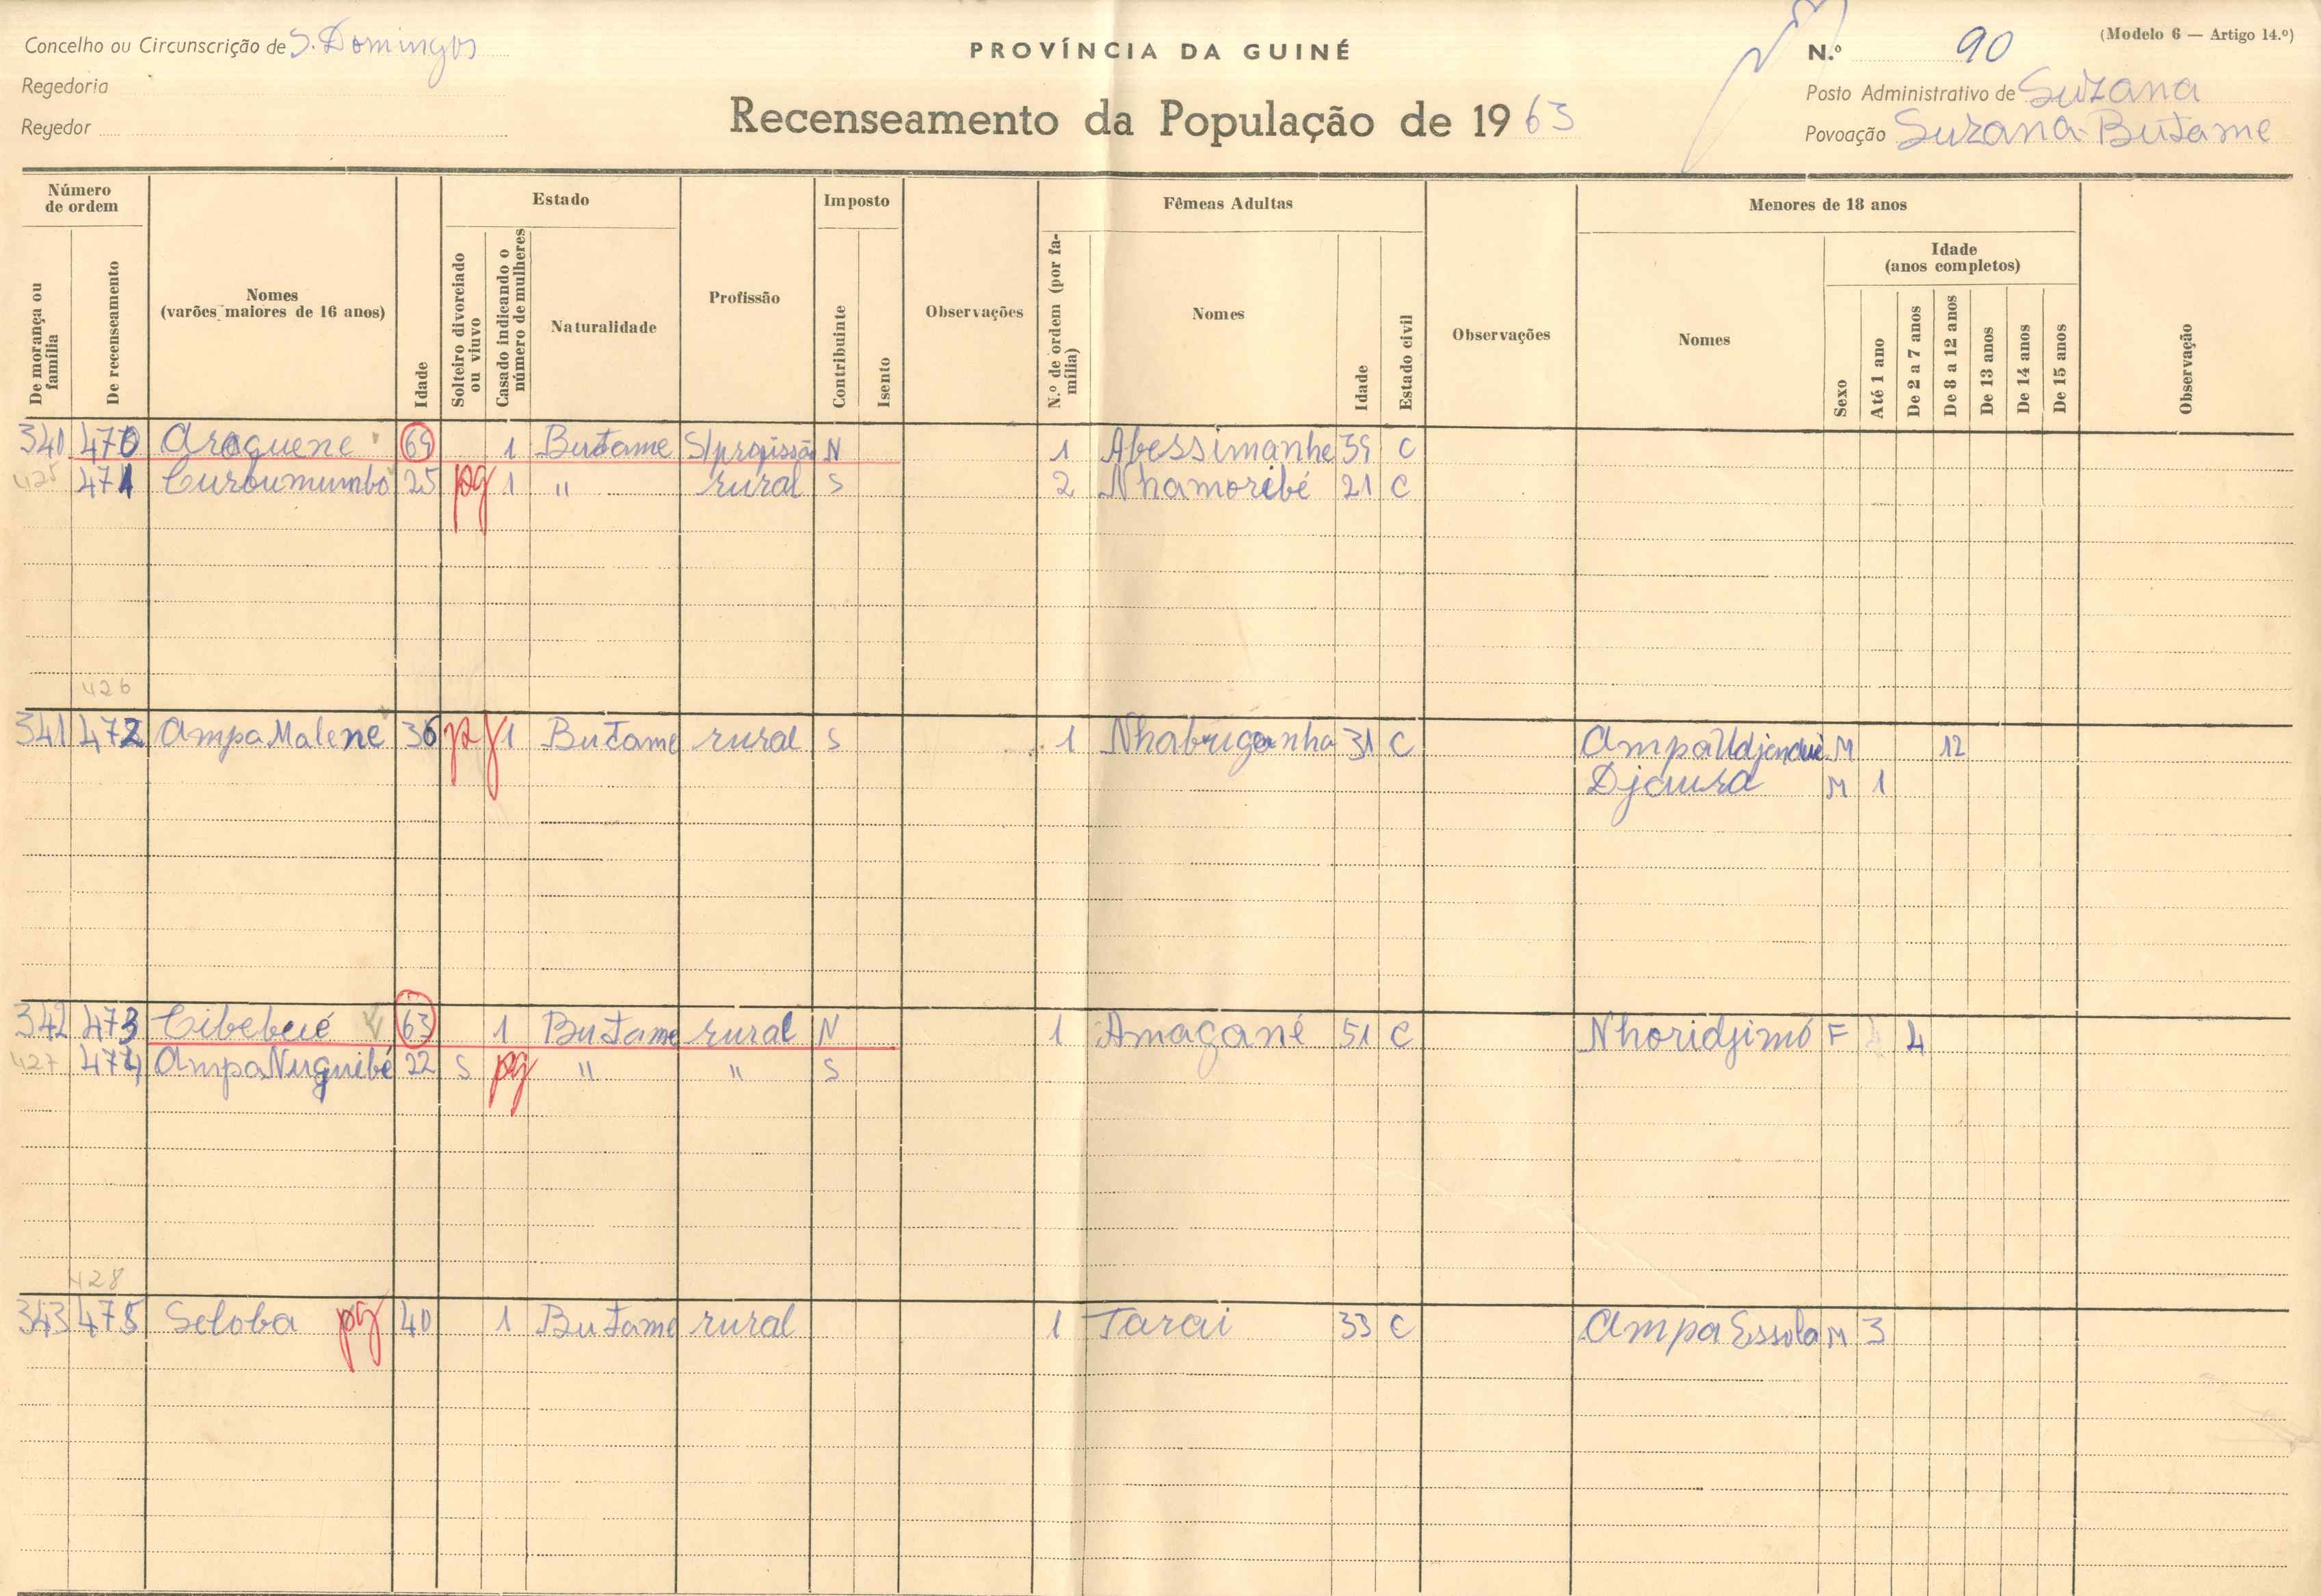 Concelho ou Circunscrição de S. Domingos
Regedoria
Regedor
PROVÍNCIA DA GUINÉ
Recenseamento da População de 1963
(Modelo 6 — Artigo 14.º)
N.º 90
Posto Administrativo de Suzana
Povoação Suzana-Butame
Número de ordem
De morança ou família
De recenseamento
Nomes
(varões maiores de 16 anos)
Idade
Estado
Solteiro divorciado ou viuvo
Casado indicando o número de mulheres
Naturalidade
Profissão
Imposto
Contribuinte
Isento
Observações
Fêmeas Adultas
N.º de ordem (por família)
Nomes
Idade
Estado civil
Observações
Menores de 18 anos
Nomes
Sexo
Idade
(anos completos)
Até 1 ano
De 2 a 7 anos
De 8 a 12 anos
De 13 anos
De 14 anos
De 15 anos
Observação
340 470 Araguene 1 Butame S/profissão N 1 Abessimanhe 39 C
425 471 Curbumumbo 25 pg 1 " rural S 2 Nhamoribé 21 C
426
341 472 Ampa Malene 36 pg 1 Butame rural S 1 Nhabuganha 31 C M 12
Djaura M 1
342 473 Cibebeué 63 1 Butame rural N 1 Amagané 51 C Nhoridjimó F 4
427 474 Ampa Nuguibé 22 S pg " " S
428
343 475 Seloba pg 40 1 Butame rural 1 Tarai 33 C Ampa Essola M 3